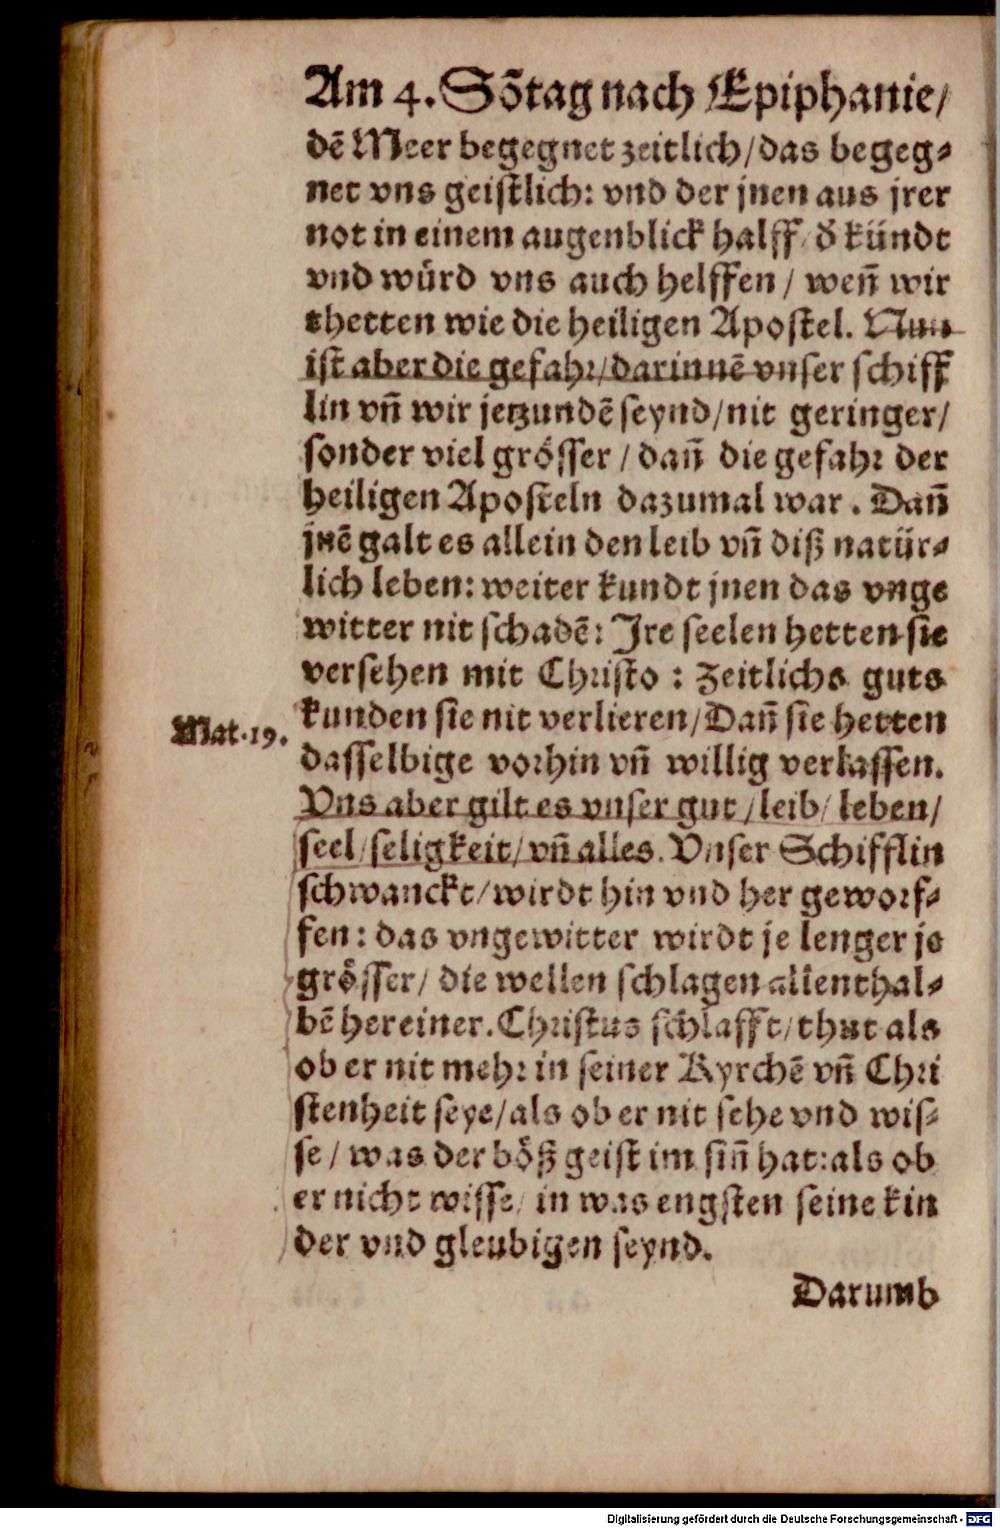 Am 4. Sõtag nach Epiphanie/
dẽ Meer begegnet zeitlich/das begeg⸗
net vns geistlich: vnd der jnen aus jrer
not in einem augenblick halff/ d̕ kündt
vnd würd vns auch helffen / weñ wir
thetten wie die heiligen Apostel. Nun
ist aber die gefahr/darinnẽ vnser schiff
lin vñ wir jetzundẽ seynd/nit geringer/
sonder viel grösser / dañ die gefahr der
heiligen Aposteln dazumal war. Dañ
jnẽ galt es allein den leib vñ diß natür⸗
lich leben: weiter kundt jnen das vnge
witter nit schadẽ: Jre seelen hetten sie
versehen mit Christo : Zeitlichs guts
kunden sie nit verlieren/Dañ sie hetten
Mat. 19.
dasselbige vorhin vñ willig verlassen.
Vns aber gilt es vnser gut /leib/ leben/
seel/seligkeit/vñ alles. Vnser Schifflin
schwanckt/wirdt hin vnd her geworf⸗
fen: das vngewitter wirdt je lenger je
grösser/ die wellen schlagen allenthal⸗
bẽ hereiner. Christus schlafft/thut als
ob er nit mehr in seiner Kyrchẽ vñ Chri
stenheit seye/als ob er nit sehe vnd wis⸗
se/ was der böß geist im siñ hat:als ob
er nicht wisse/ in was engsten seine kin
der vnd gleubigen seynd.
Darumb
Digitalisierung gefördert durch die Deutsche Forschungsgemeinschaft - DFG